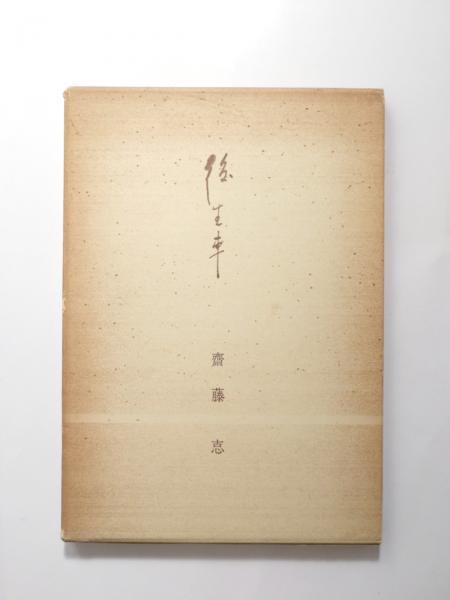 後生車
齋藤恵